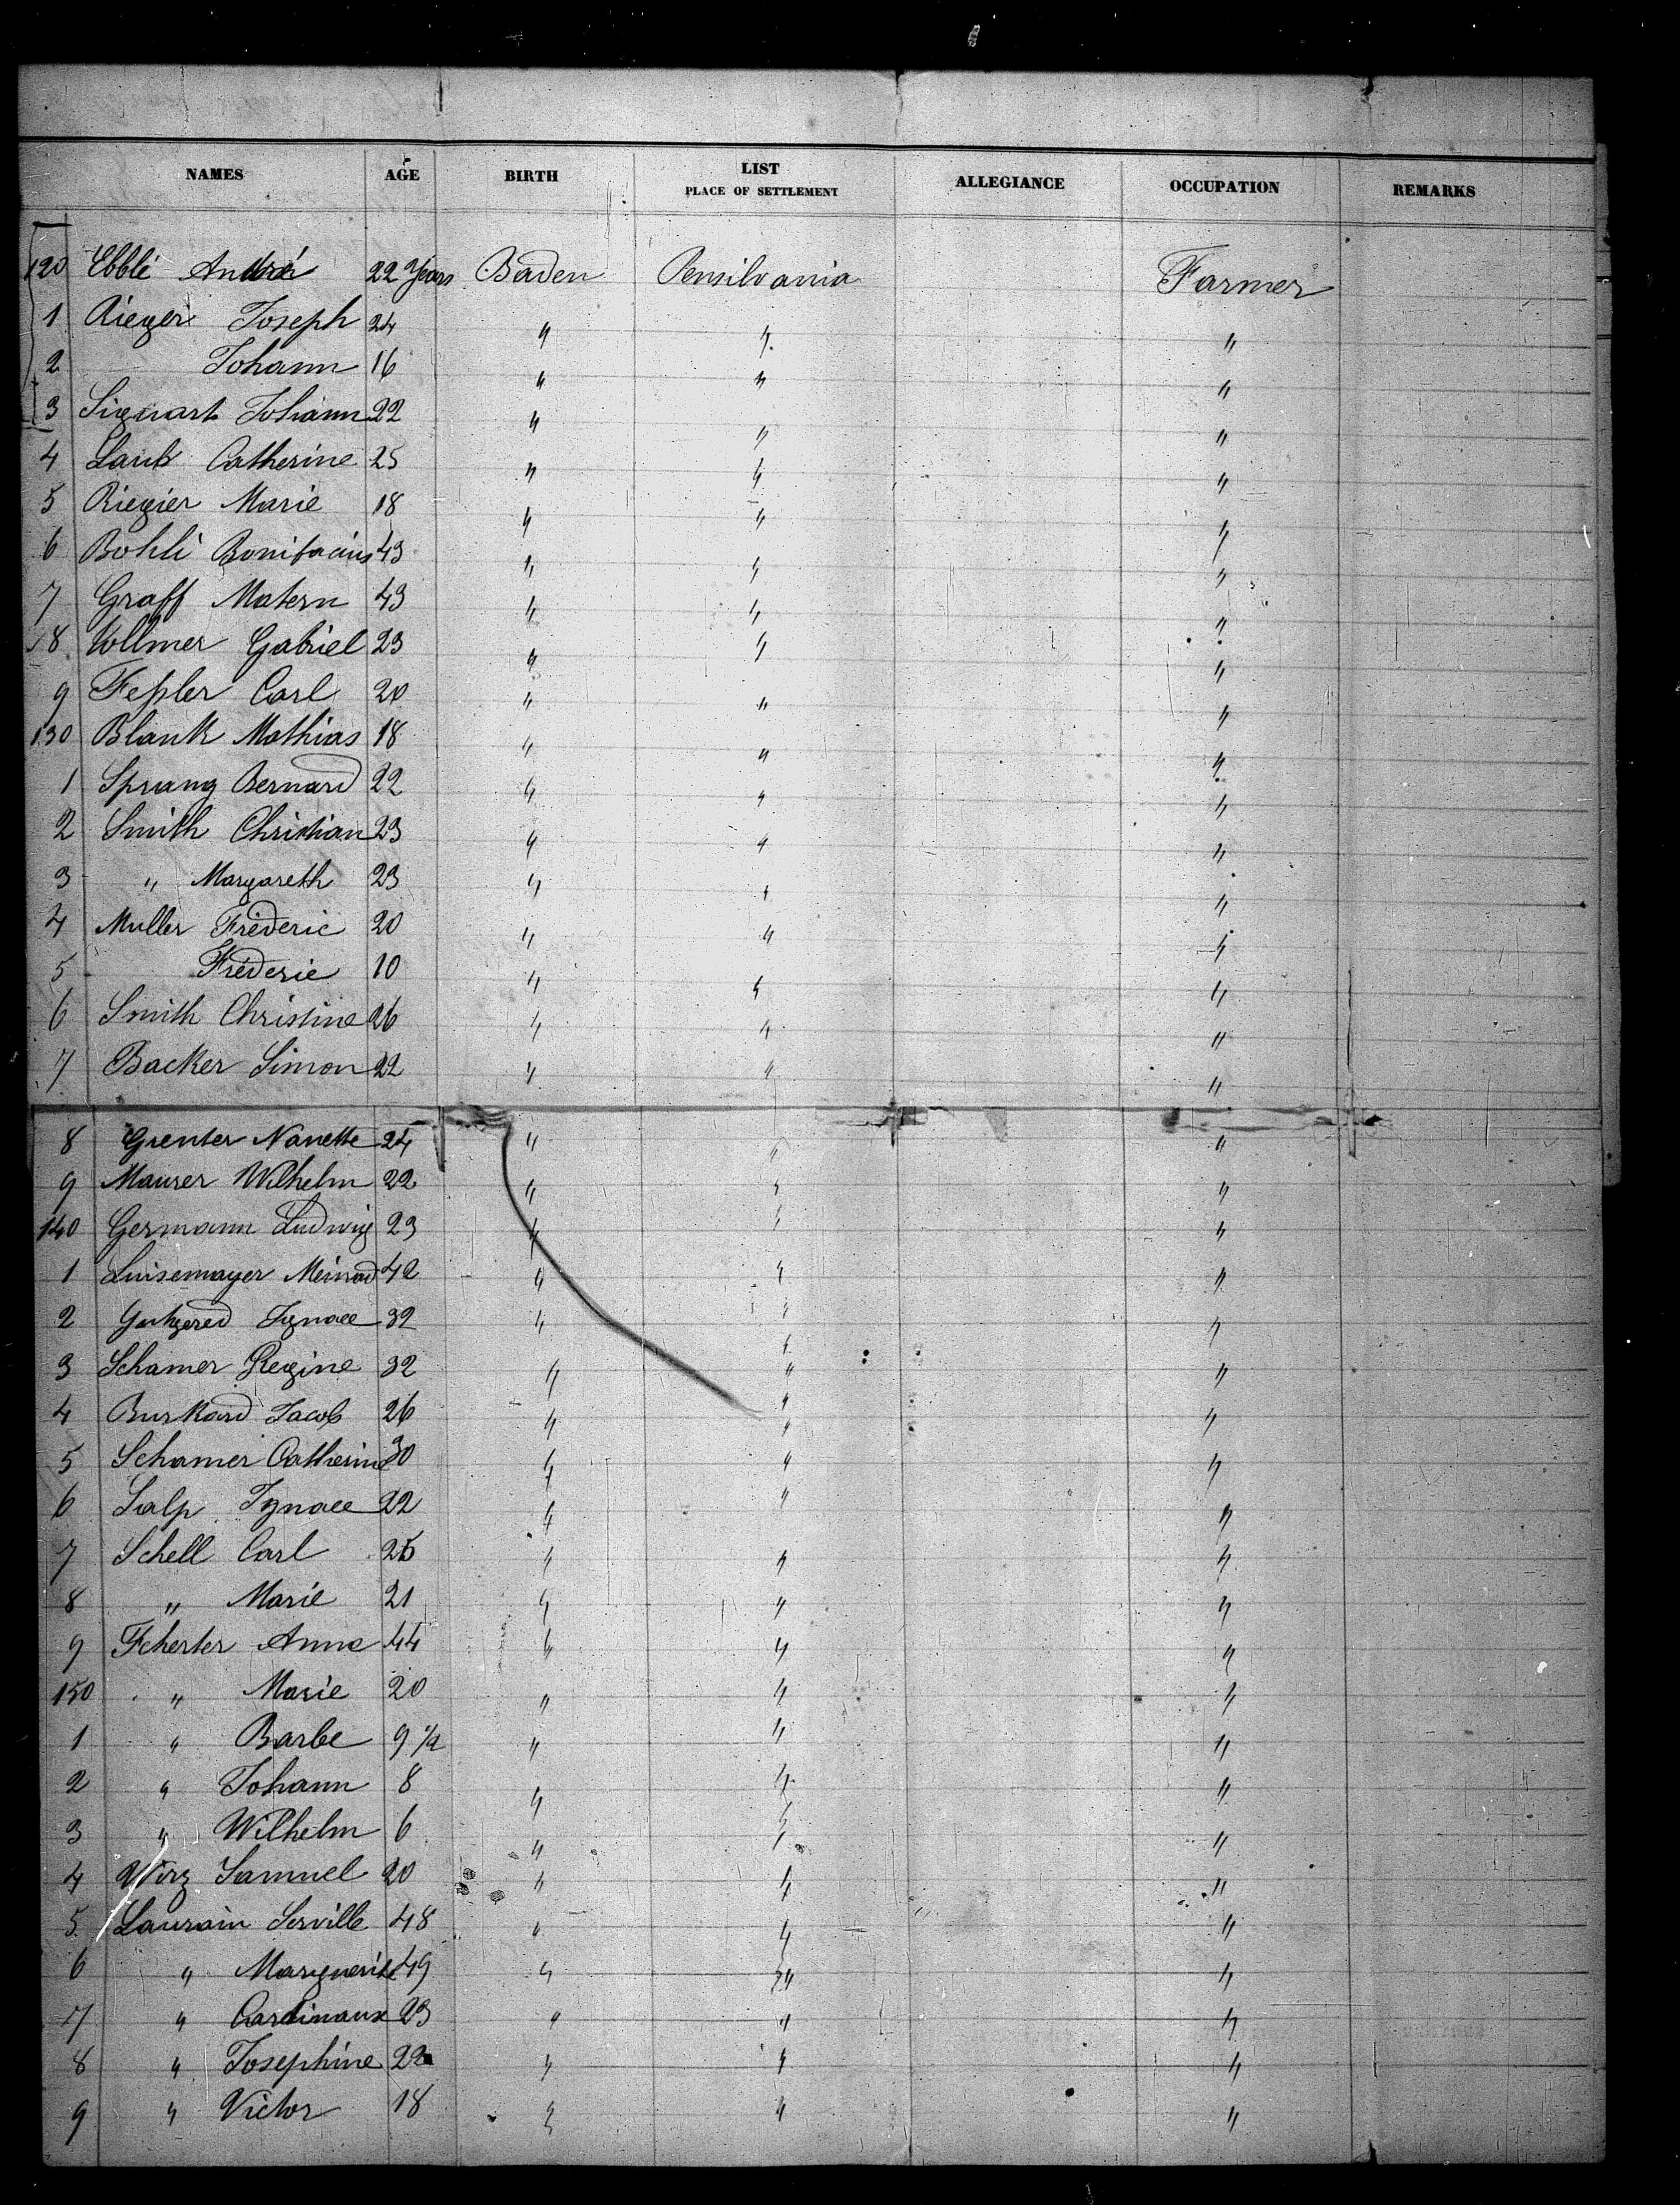 NAMES AGE BIRTH LIST PLACE OF SETTLEMENT ALLEGIANCE OCCUPATION REMARKS
120 Ebblé 22 Years Baden Pensilvania Farmer
1 Rieger Joseph 24 " " "
2 Johann 16 " " "
3 Siguart Johann 22 " " "
4 Catherine 25 " " "
5 Riegier Marie 18 " " "
6 Bohli Bonifacius 43 " " "
7 Graff Matern 43 " " "
8 Vollmer Gabriel 23 " " "
9 Feßler Carl 20 " " "
130 Blank Mathias 18 " " "
1 Sprang Bernard 22 " " "
2 Smith Christian 23 " " "
3 " Margareth 23 " " "
4 Muller Fréderic 20 " " "
5 Fréderic 10 " " "
6 Smith Christine 26 " " "
7 Backer Simon 22 " " "
8 Grenter Nanette 24 " " "
9 Maurer Wilhelm 22 " " "
140 Germann Ludwig 23 " " "
1 Luisemayer Meinrad 42 " " "
2 Ignace 32 " " "
3 Schamer Regine 32 " " "
4 Burkard Jacob 26 " " "
5 Schamer Catherine 30 " " "
6 Salp Ignace 22 " " "
7 Schell Carl " " "
8 " Marie 21 " " "
9 Fcherter Anna 44 " " "
150 " Marie 20 " " "
1 " Barbe 9 1/2 " " "
2 " Johann 8 " " "
3 " Wilhelm 6 " " "
4 Wirz Samuel 20 " " "
5 Laurain Serville 48 " " "
6 " Marguerite 49 " " "
7 " Cardinaux 23 " " "
8 " Josephine 22 " " "
9 " Victor 18 " " "